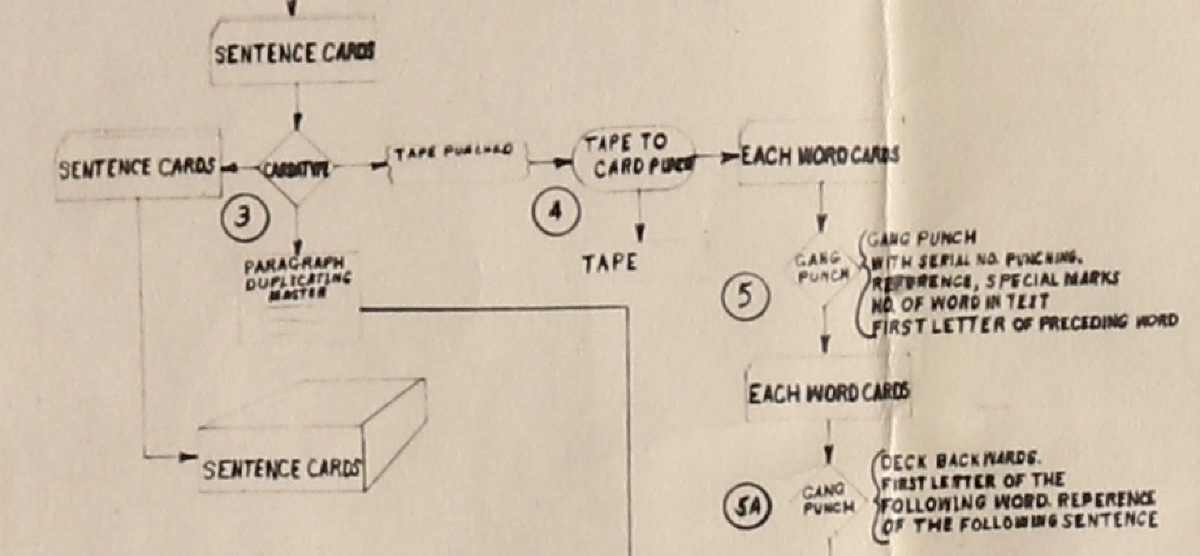 SENTENCE CARDS
SENTENCE CARDS
CARDATYPE
TAPE PUNCHED
TAPE TO
CARD PUNCH
EACH WORD CARDS
3
4
PARAGRAPH
DUPLICATING
MASTER
TAPE
5
GANG
PUNCH
GANG PUNCH
WITH SERIAL NO. PUNCHING.
REFERENCE, SPECIAL MARKS
NO. OF WORD IN TEXT
FIRST LETTER OF PRECEDING WORD
EACH WORD CARDS
SENTENCE CARDS
5A
GANG
PUNCH
DECK BACKWARDS.
FIRST LETTER OF THE
FOLLOWING WORD. REFERENCE
OF THE FOLLOWING SENTENCE